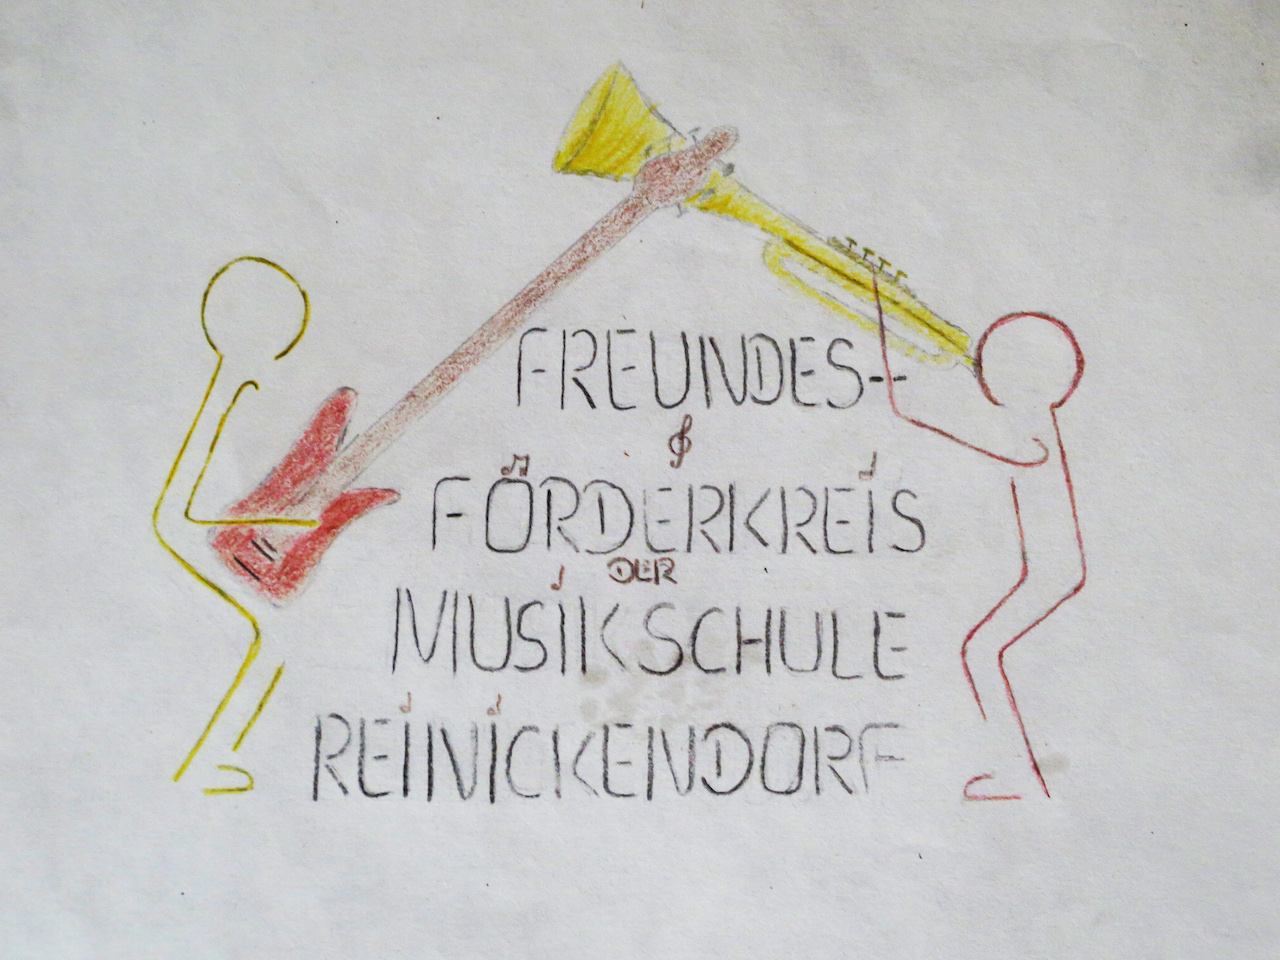 FREUNDES-
&
FÖRDERKREIS
DER
MUSIKSCHULE
REINICKENDORF